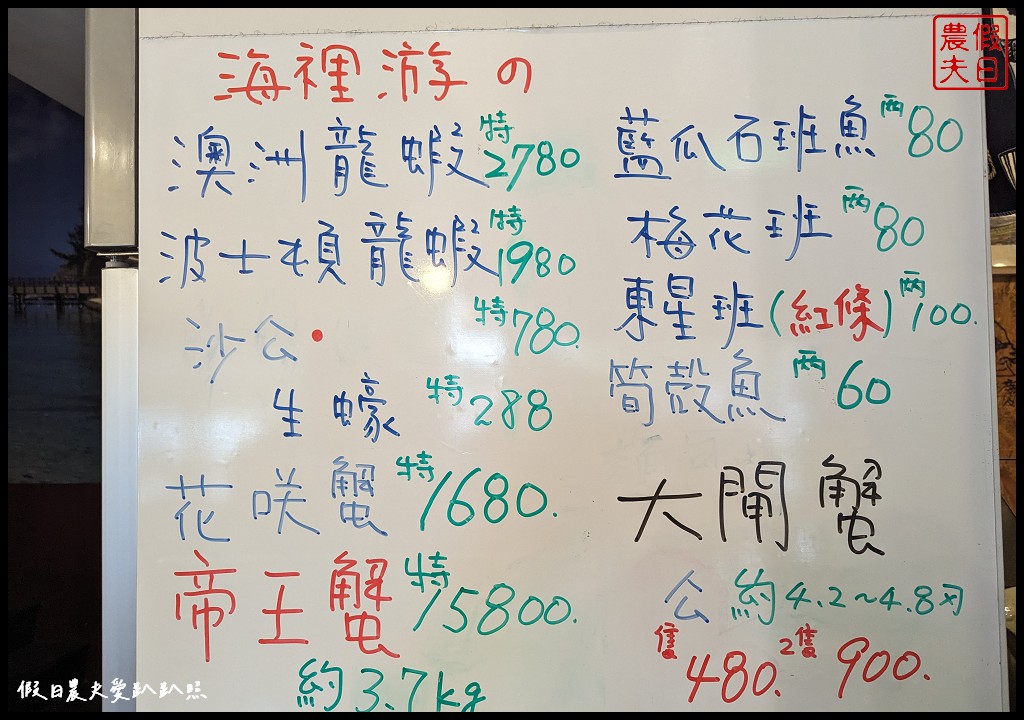 海裡游の
澳洲龍蝦 特2780
波士頓龍蝦 特1980
沙公 特780.
生蠔 特288
花咲蟹 特1680.
帝王蟹 特15800.
約3.7kg
藍瓜石班魚 兩80
梅花班 兩80
東星班(紅條) 兩100.
筍殼魚 兩60
大閘蟹
公 約4.2~4.8刄
隻480. 2隻900.
假日農夫
假日農夫愛趴趴照